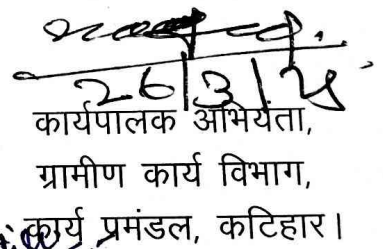 26/3/25
कार्यपालक अभियंता,
ग्रामीण कार्य विभाग,
कार्य प्रमंडल, कटिहार।